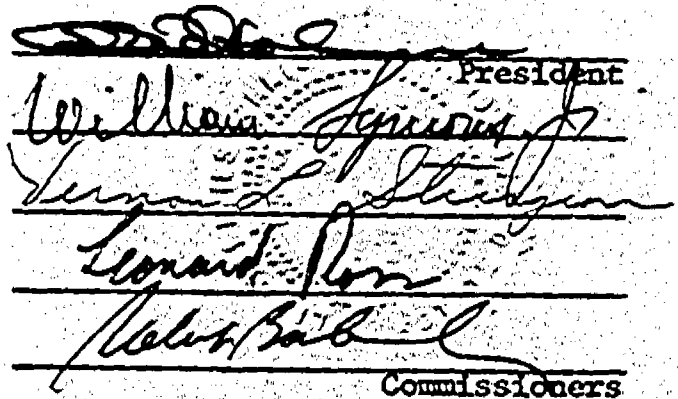 President
William Symons Jr
Vernon L Sturgeon
Leonard Ross
Commissioners